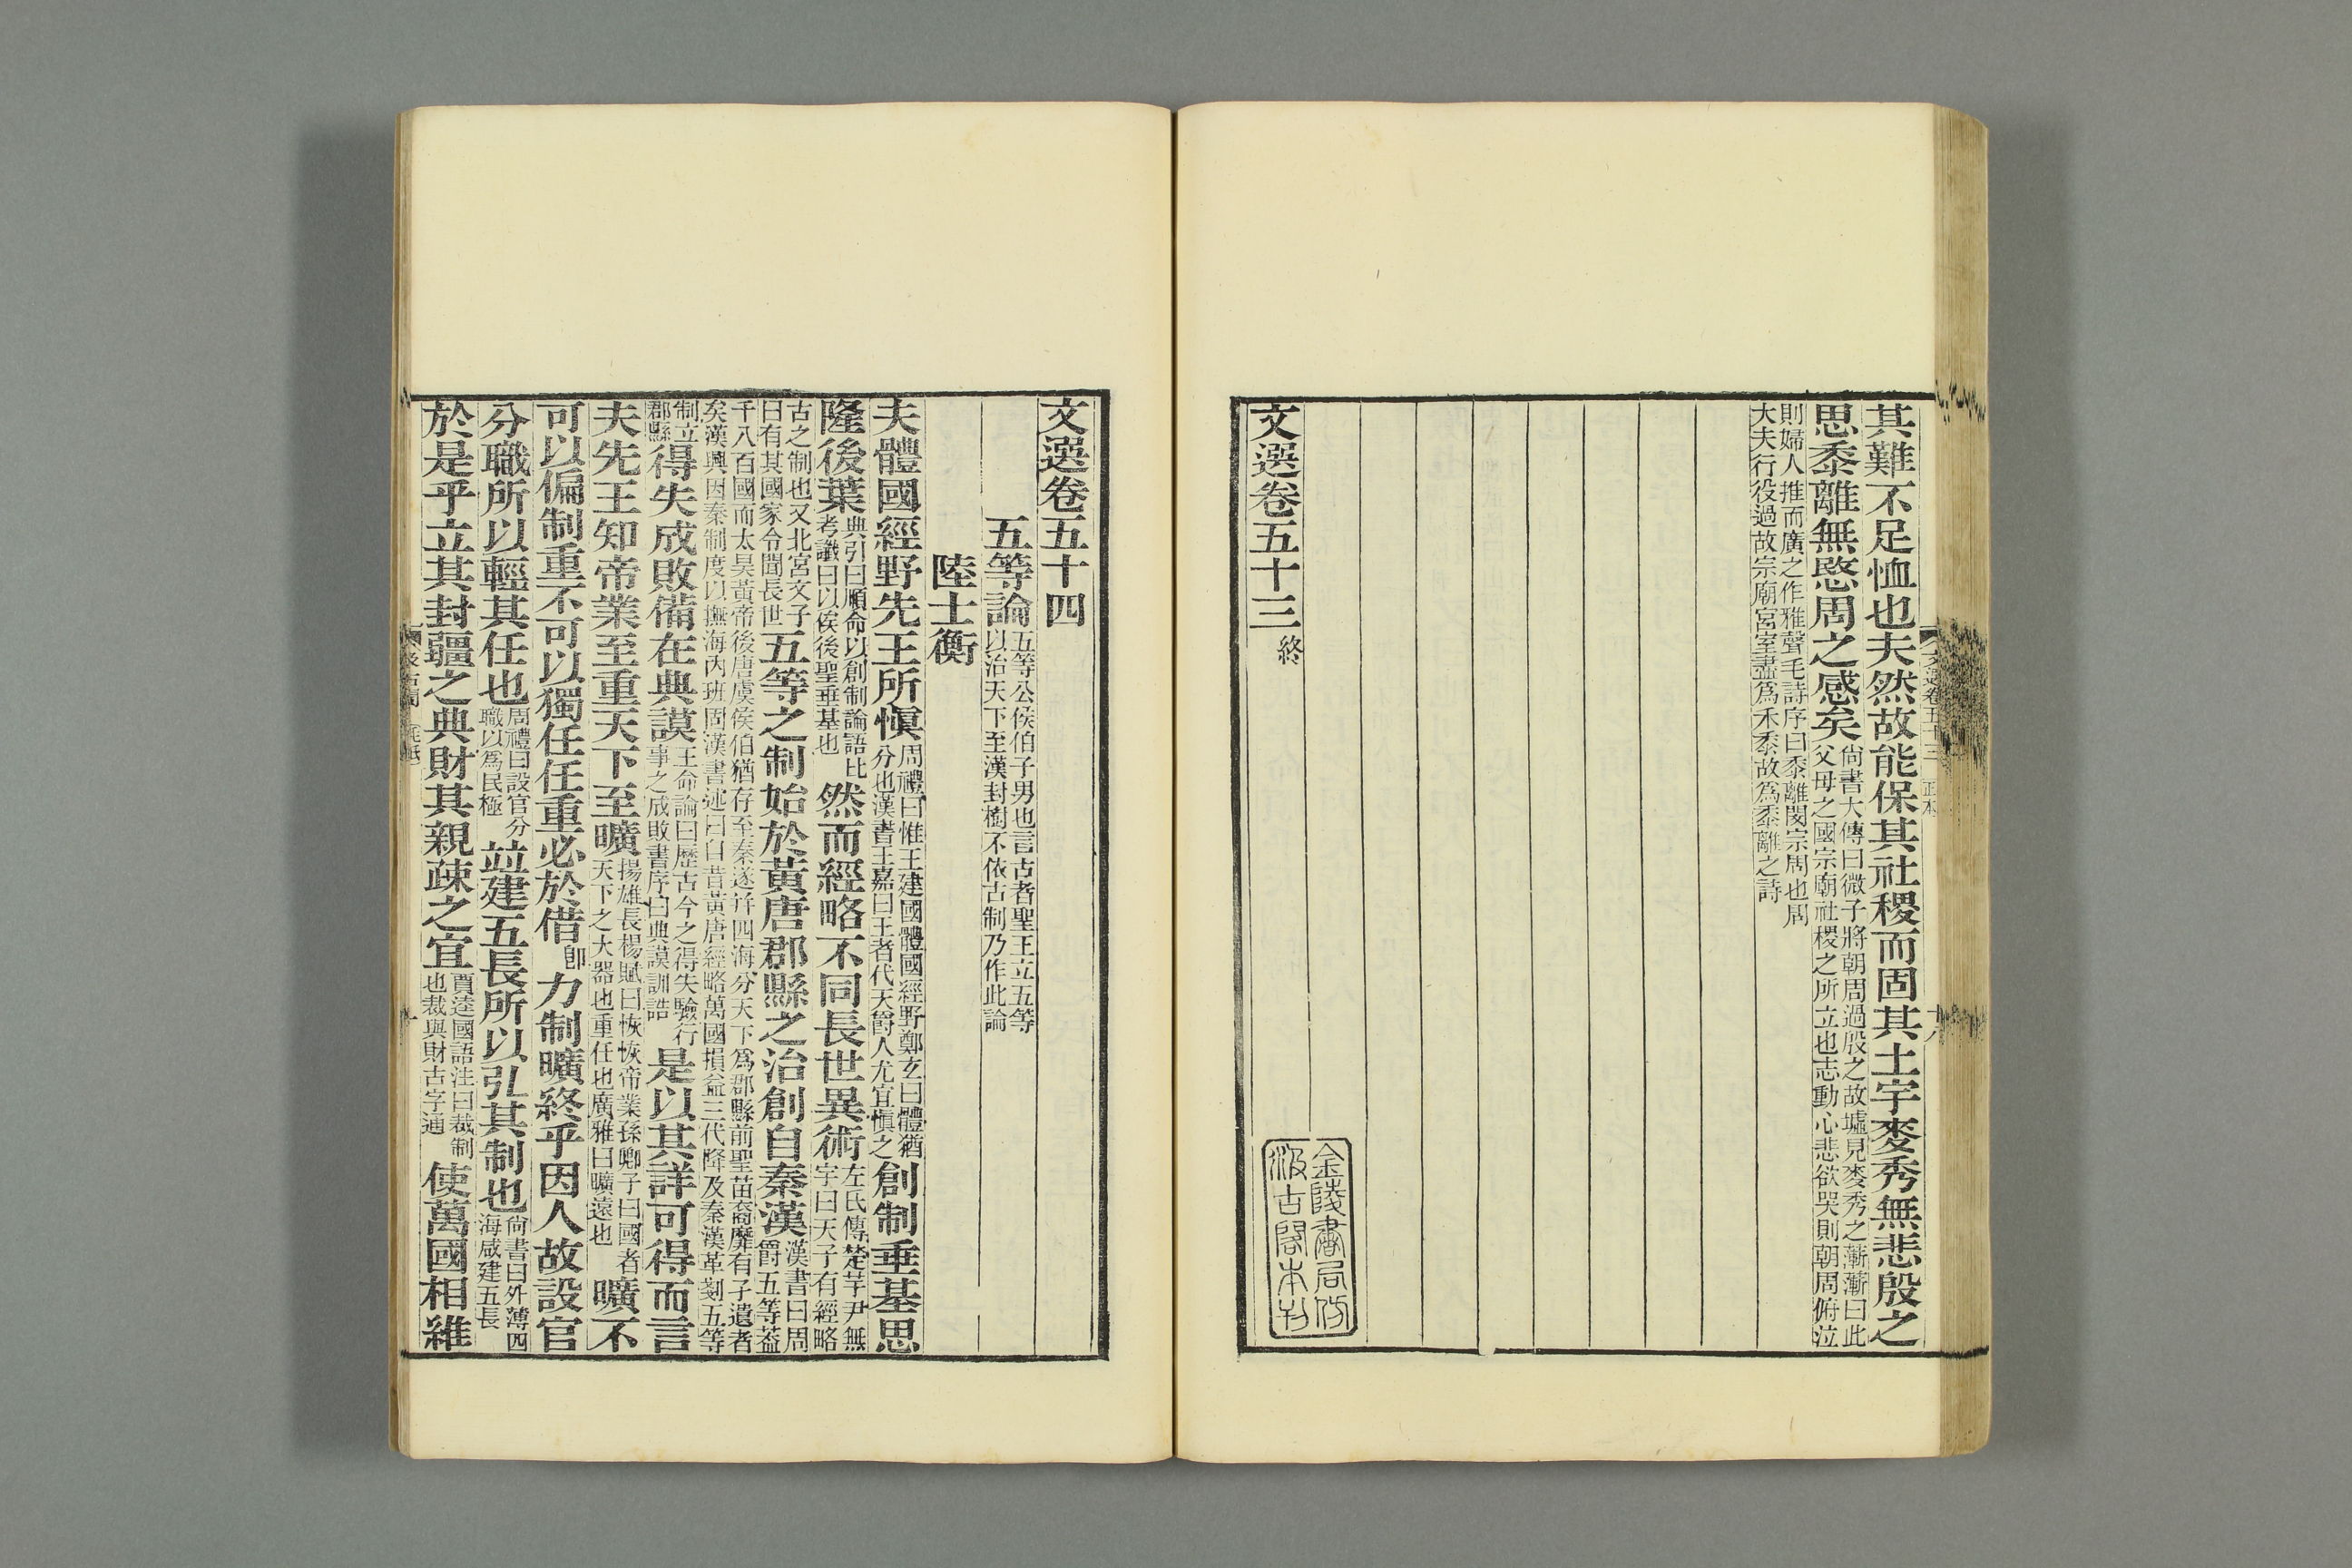 其難不足恤也夫然故能保其社稷而固其土宇麥秀無悲殷之
思黍離無愍周之感矣尚書大傳曰微子將朝周過殷之故墟見麥秀之蔪蔪曰此父母之國宗廟社稷之所立也志動心悲欲哭則朝周俯泣
則婦人推而廣之作雅聲毛詩序曰黍離閔宗周也周大夫行役過故宗廟宮室盡爲禾黍故爲黍離之詩
文選卷五十三 終
金陵書局仿
汲古閣本刊
文選卷五十四
五等論五等公侯伯子男也言古者聖王立五等以治天下至漢封樹不依古制乃作此論
陸士衡
夫體國經野先王所愼周禮曰惟王建國體國經野鄭玄曰體猶分也漢書王嘉曰王者代天爵人尤宜愼之創制垂基思
隆後葉典引曰順命以創制論語比考讖曰以俟後聖垂基也然而經略不同長世異術左氏傳楚芋尹無宇曰天子有經略
古之制也又北宮文子曰有其國家令聞長世五等之制始於黃唐郡縣之治創自秦漢漢書曰周爵五等葢
千八百國而太昊黃帝後唐虞侯伯猶存至秦遂并四海分天下爲郡縣前聖苗裔靡有孑遺者矣漢興因秦制度以撫海內班固漢書述曰自昔黃唐經略萬國損益三代降及秦漢革剗五等
制立郡縣得失成敗備在典謨王命論曰歷古今之得失驗行事之成敗書序曰典謨訓誥是以其詳可得而言
夫先王知帝業至重天下至曠揚雄長楊賦曰恢恢帝業孫卿子曰國者天下之大器也重任也廣雅曰曠遠也曠不
可以偏制重不可以獨任任重必於借卽力制曠終乎因人故設官
分職所以輕其任也周禮曰設官分職以爲民極竝建五長所以弘其制也尚書曰外薄四海咸建五長
於是乎立其封疆之典財其親疎之宜賈逵國語注曰裁制也裁與財古字通使萬國相維